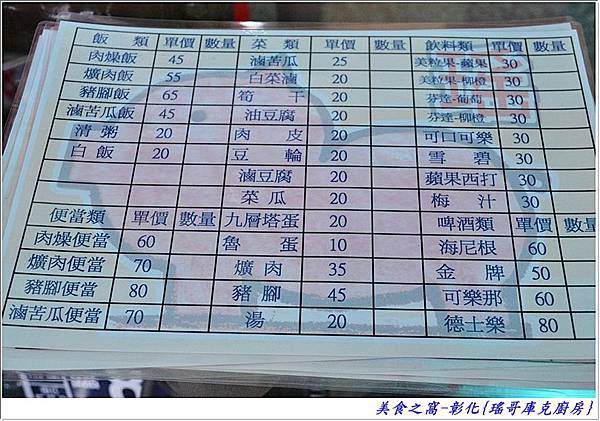 飯類 單價 數量 菜類 單價 數量 飲料類 單價 數量
肉燥飯 45 滷苦瓜 25 美粒果-蘋果 30
爌肉飯 55 白菜滷 20 美粒果-柳橙 30
豬腳飯 65 筍干 20 芬達-葡萄 30
滷苦瓜飯 45 油豆腐 20 芬達-柳橙 30
清粥 20 肉皮 20 可口可樂 30
白飯 20 豆輪 20 雪碧 30
滷豆腐 20 蘋果西打 30
菜瓜 20 梅汁 30
便當類 單價 數量 九層塔蛋 20 啤酒類 單價 數量
肉燥便當 60 魯蛋 10 海尼根 60
爌肉便當 70 爌肉 35 金牌 50
豬腳便當 80 豬腳 45 可樂那 60
滷苦瓜便當 70 湯 20 德士樂 80
美食之窩-彰化{瑤哥庫克廚房}